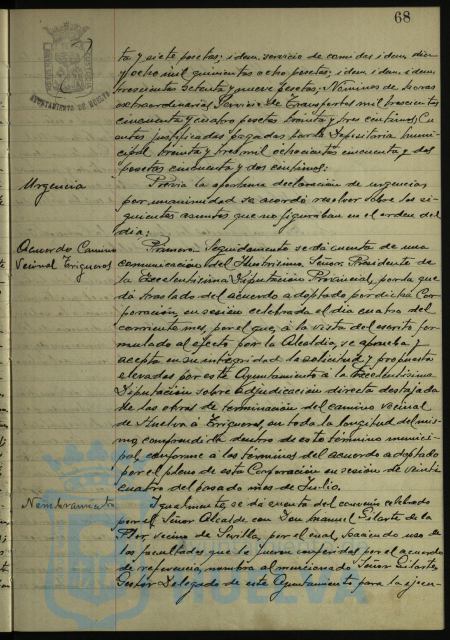 68
AYUNTAMIENTO DE HUELVA
ta y siete pesetas; idem servicio de comidas idem diez
y ocho mil quinientas ocho pesetas; idem idem idem
trescientas setenta y nueve pesetas; Nóminas de horas
extraordinarias Servicio de Transportes mil trescientas
cincuenta y cuatro pesetas treinta y tres céntimos; Cu
entas justificadas pagadas por la Depositaria muni
cipal treinta y tres mil ochocientas cincuenta y dos
pesetas cincuenta y dos céntimos:
Urgencia
Previa la oportuna declaración de urgencia
por unanimidad se acordó resolver sobre los si
guientes asuntos que no figuraban en el orden del
día:
Acuerdo Camino
Vecinal Trigueros
Primero. Seguidamente se dá cuenta de una
comunicación del Ilustrísimo Señor Presidente de
la Excelentísima Diputación Provincial, por la que
dá traslado del acuerdo adoptado por dicha Cor
poración, en sesión celebrada el dia cuatro del
corriente mes, por el que, á la vista del escrito for
mulado al efecto por la Alcaldia, se aprueba y
acepta en su integridad la solicitud y propuesta
elevadas por este Ayuntamiento á la Excelentísima
Diputación sobre adjudicación directa destajada
de las obras de terminación del camino vecinal
de Huelva á Trigueros, en toda la longitud del mis
mo comprendida dentro de este término munici
pal, conforme á los términos del acuerdo adoptado
por el pleno de esta Corporación en sesión de veinti
cuatro del pasado mes de Julio.
Nombramiento
Igualmente, se dá cuenta del convenio celebrado
por el Señor Alcalde con Don Manuel Gilarte de la
Flor, vecino de Sevilla, por el cual, haciendo uso de
las facultades que le fueron conferidas por el acuerdo
de referencia, nombra al mencionado Señor Gilarte
Gestor Delegado de este Ayuntamiento para la ejecu-
HUELVA